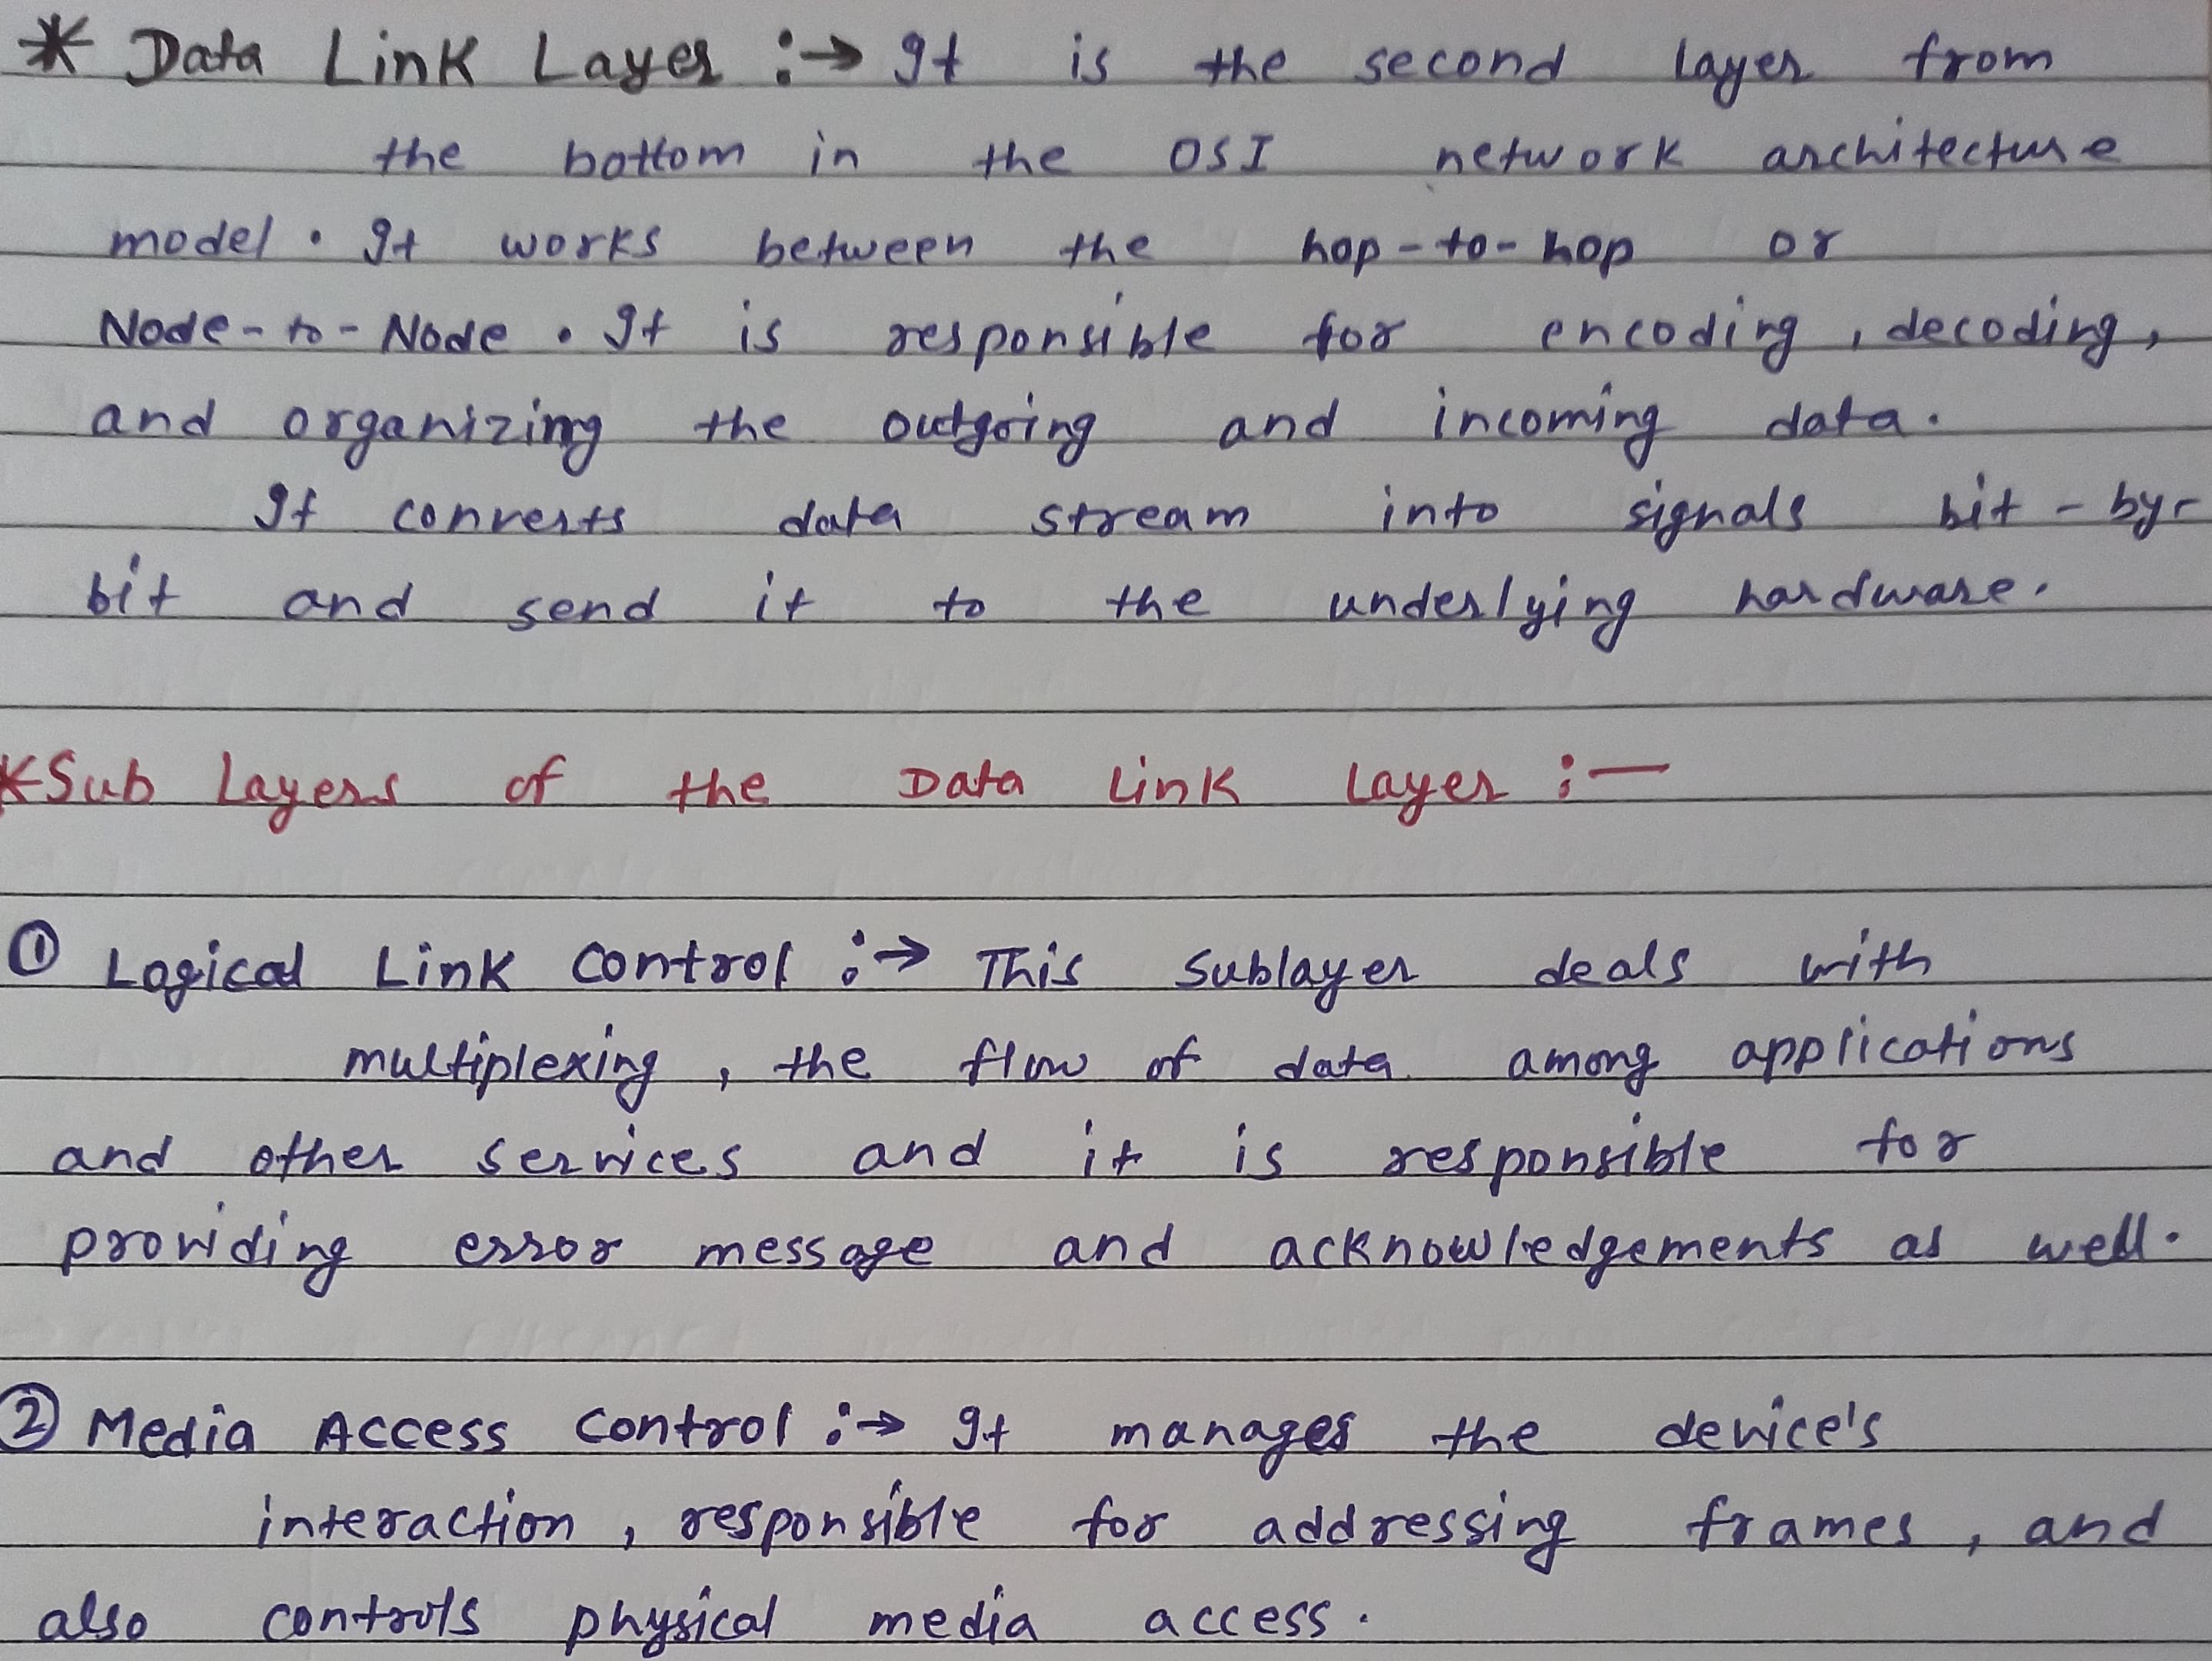 * Data Link Layer :→ It is the second layer from
the bottom in the OSI network architecture
model. It works between the hop-to-hop or
Node-to-Node. It is responsible for encoding, decoding,
and organizing the outgoing and incoming data.
It converts data stream into signals bit-by-
bit and send it to the underlying hardware.
*Sub Layers of the Data Link Layer :-
① Logical Link Control :→ This Sublayer deals with
multiplexing, the flow of data among applications
and other services and it is responsible for
providing error message and acknowledgements as well.
② Media Access Control :→ It manages the device's
interaction, responsible for addressing frames, and
also controls physical media access.